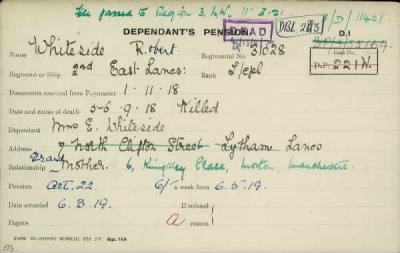 File passed to Region 3. N.W. 11.3.21
DEPENDANT'S PENSION
DEAD
D/11401
D.1
Whiteside Robert
31628
Regiment or Ship 2nd East Lancs: L/cpl
D.P. 221 W.
Documents received from Paymaster 1.11.18
Date and cause of death 5-6.9.18 Killed
Dependant Mrs E. Whiteside
Address 7 North Clifton Street Lytham Lancs
Grand
Relationship Mother. 6, Kingsley Manchester.
Pension Art. 22. 6/- a week from 6.5.19.
Date awarded 6.3.19. If refused
Papers a reason